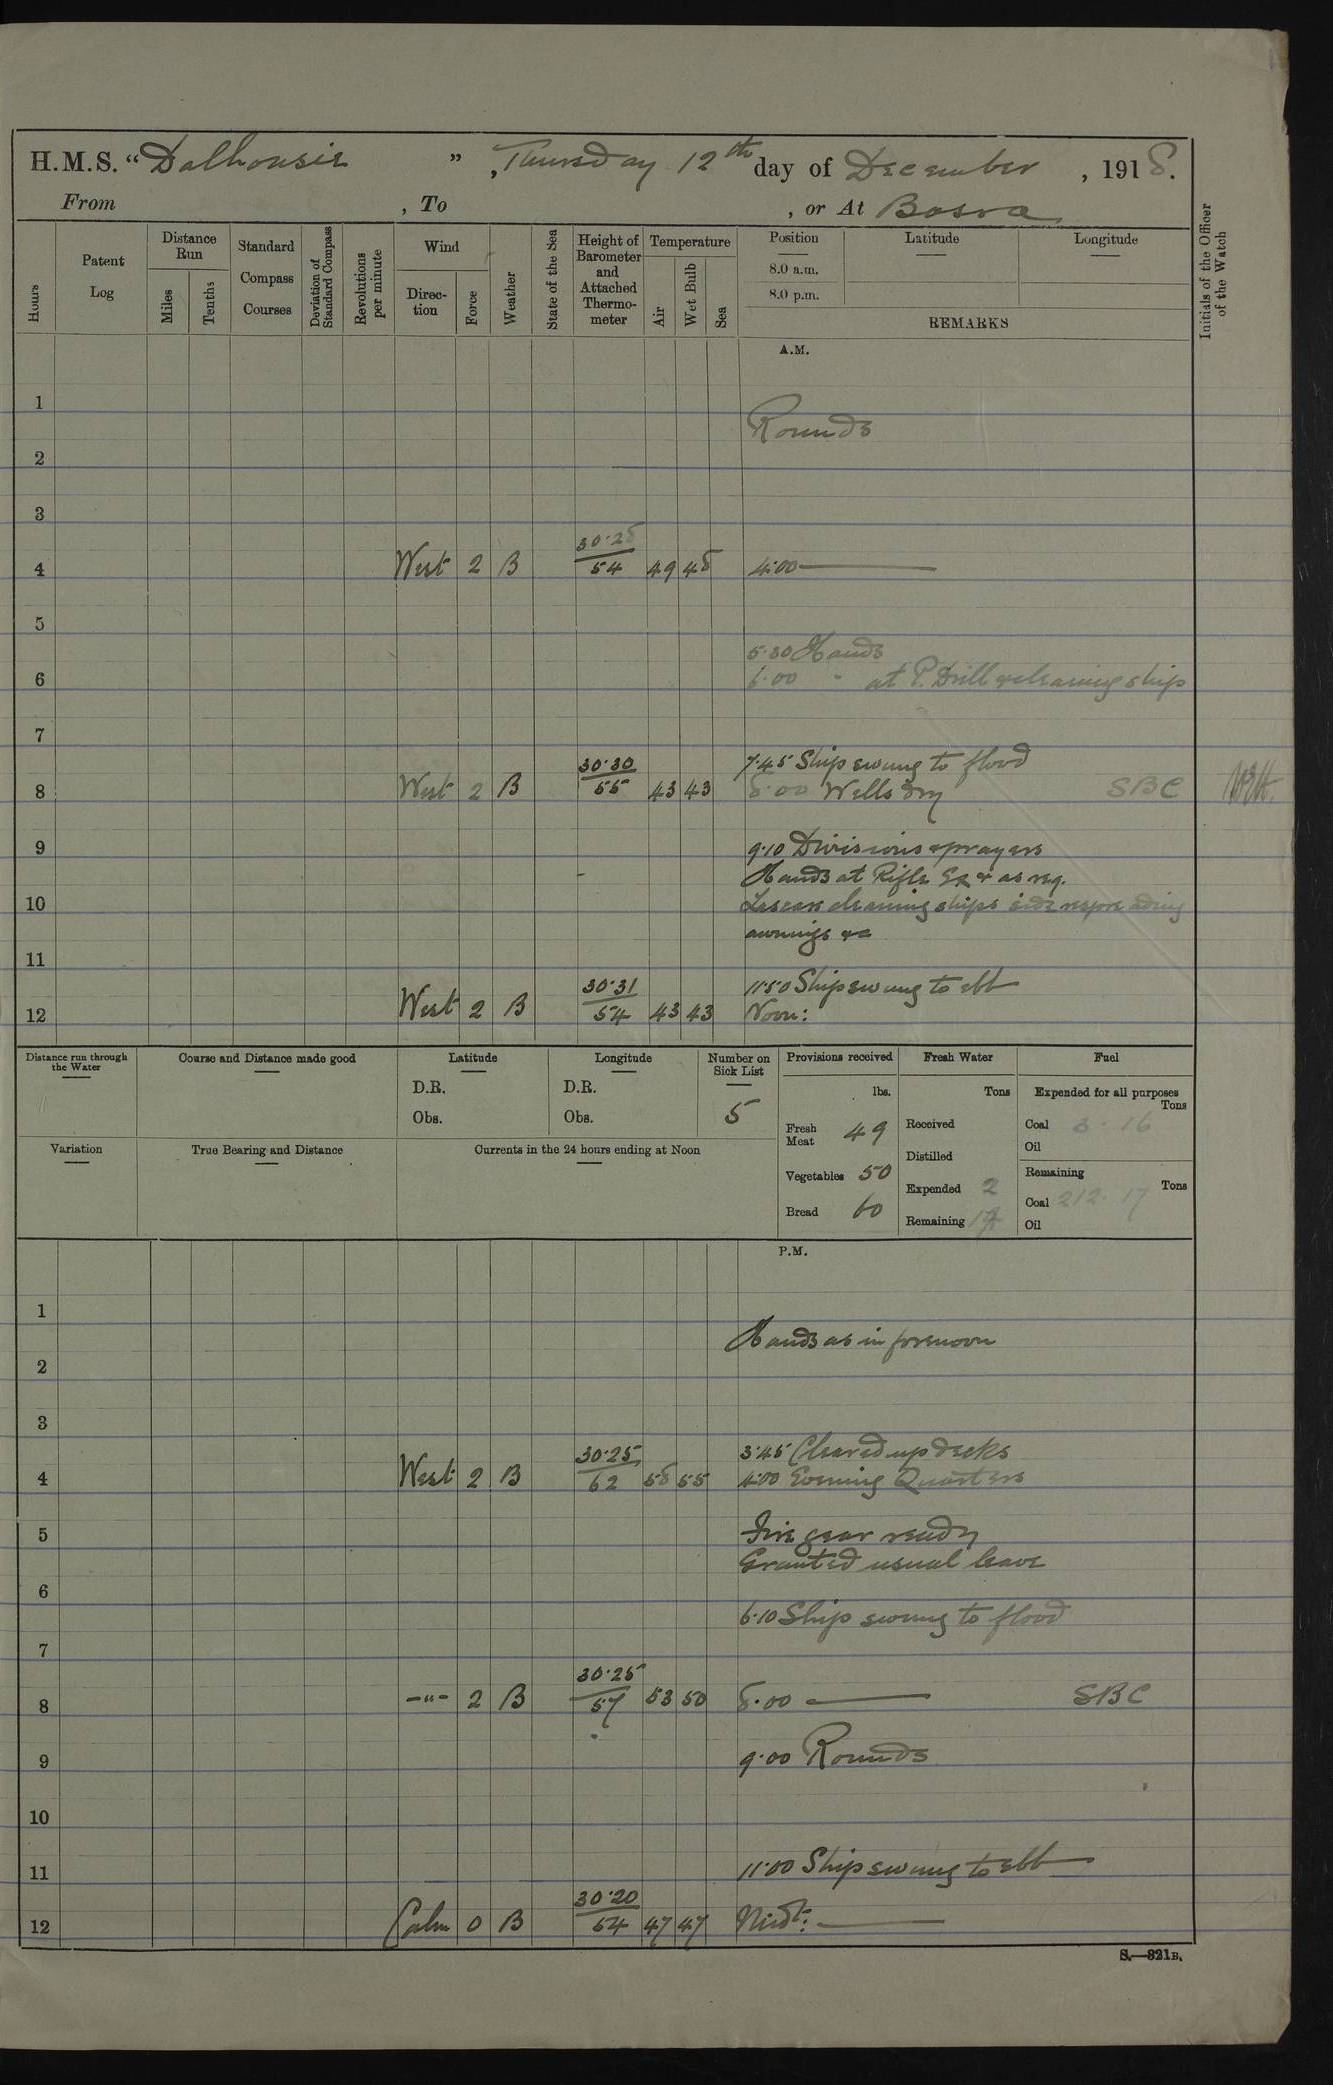 H.M.S. "Dalhousie", Thursday 12th day of December, 1918.
From , To , or At Basra
Hours
Patent Log
Distance Run
Miles
Tenths
Standard Compass Courses
Deviation of Standard Compass
Revolutions per minute
Wind
Direction
Force
Weather
State of the Sea
Height of Barometer and Attached Thermometer
Temperature
Air
Wet Bulb
Sea
Position
8.0 a.m.
8.0 p.m.
Latitude
Longitude
REMARKS
Initials of the Officer of the Watch
A.M.
1
Rounds
2
3
4 West 2 B 30.28 54 49 48 4.00
5
5.30 Hands
6 6.00 " at P. Drill & cleaning ship
7
7.45 Ship swung to flood
8 West 2 B 30.30 55 43 43 8.00 Wells dry SBC
9 9.10 Divisions & prayers
Hands at Rifle Ex & as req.
10 Lascars cleaning ships side
awnings &c
11
11.50 Ship swung to ebb
12 West 2 B 30.31 54 43 43 Noon:
Distance run through the Water
Course and Distance made good
Latitude
D.R.
Obs.
Longitude
D.R.
Obs.
Number on Sick List
5
Provisions received
lbs.
Fresh Meat 49
Vegetables 50
Bread 60
Fresh Water
Tons
Received
Distilled
Expended 2
Remaining
Fuel
Expended for all purposes
Tons
Coal 3.16
Oil
Remaining
Tons
Coal 212.17
Oil
Variation
True Bearing and Distance
Currents in the 24 hours ending at Noon
P.M.
1
Hands as in forenoon
2
3
3.45 Cleared up decks
4 West 2 B 30.25 62 58 55 4.00 Evening Quarters
5 Fire gear ready
Granted usual leave
6
6.10 Ship swung to flood
7
8 -"- 2 B 30.25 57 53 50 8.00 SBC
9 9.00 Rounds
10
11 11.00 Ship swung to ebb
12 Calm 0 B 30.20 54 47 47 Midt:
S.—321B.